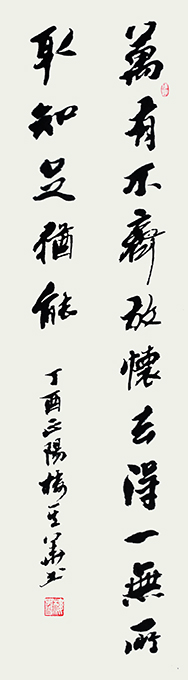 萬有不齊放懷云得一無所
取知足猶能
丁酉正陽樓華書